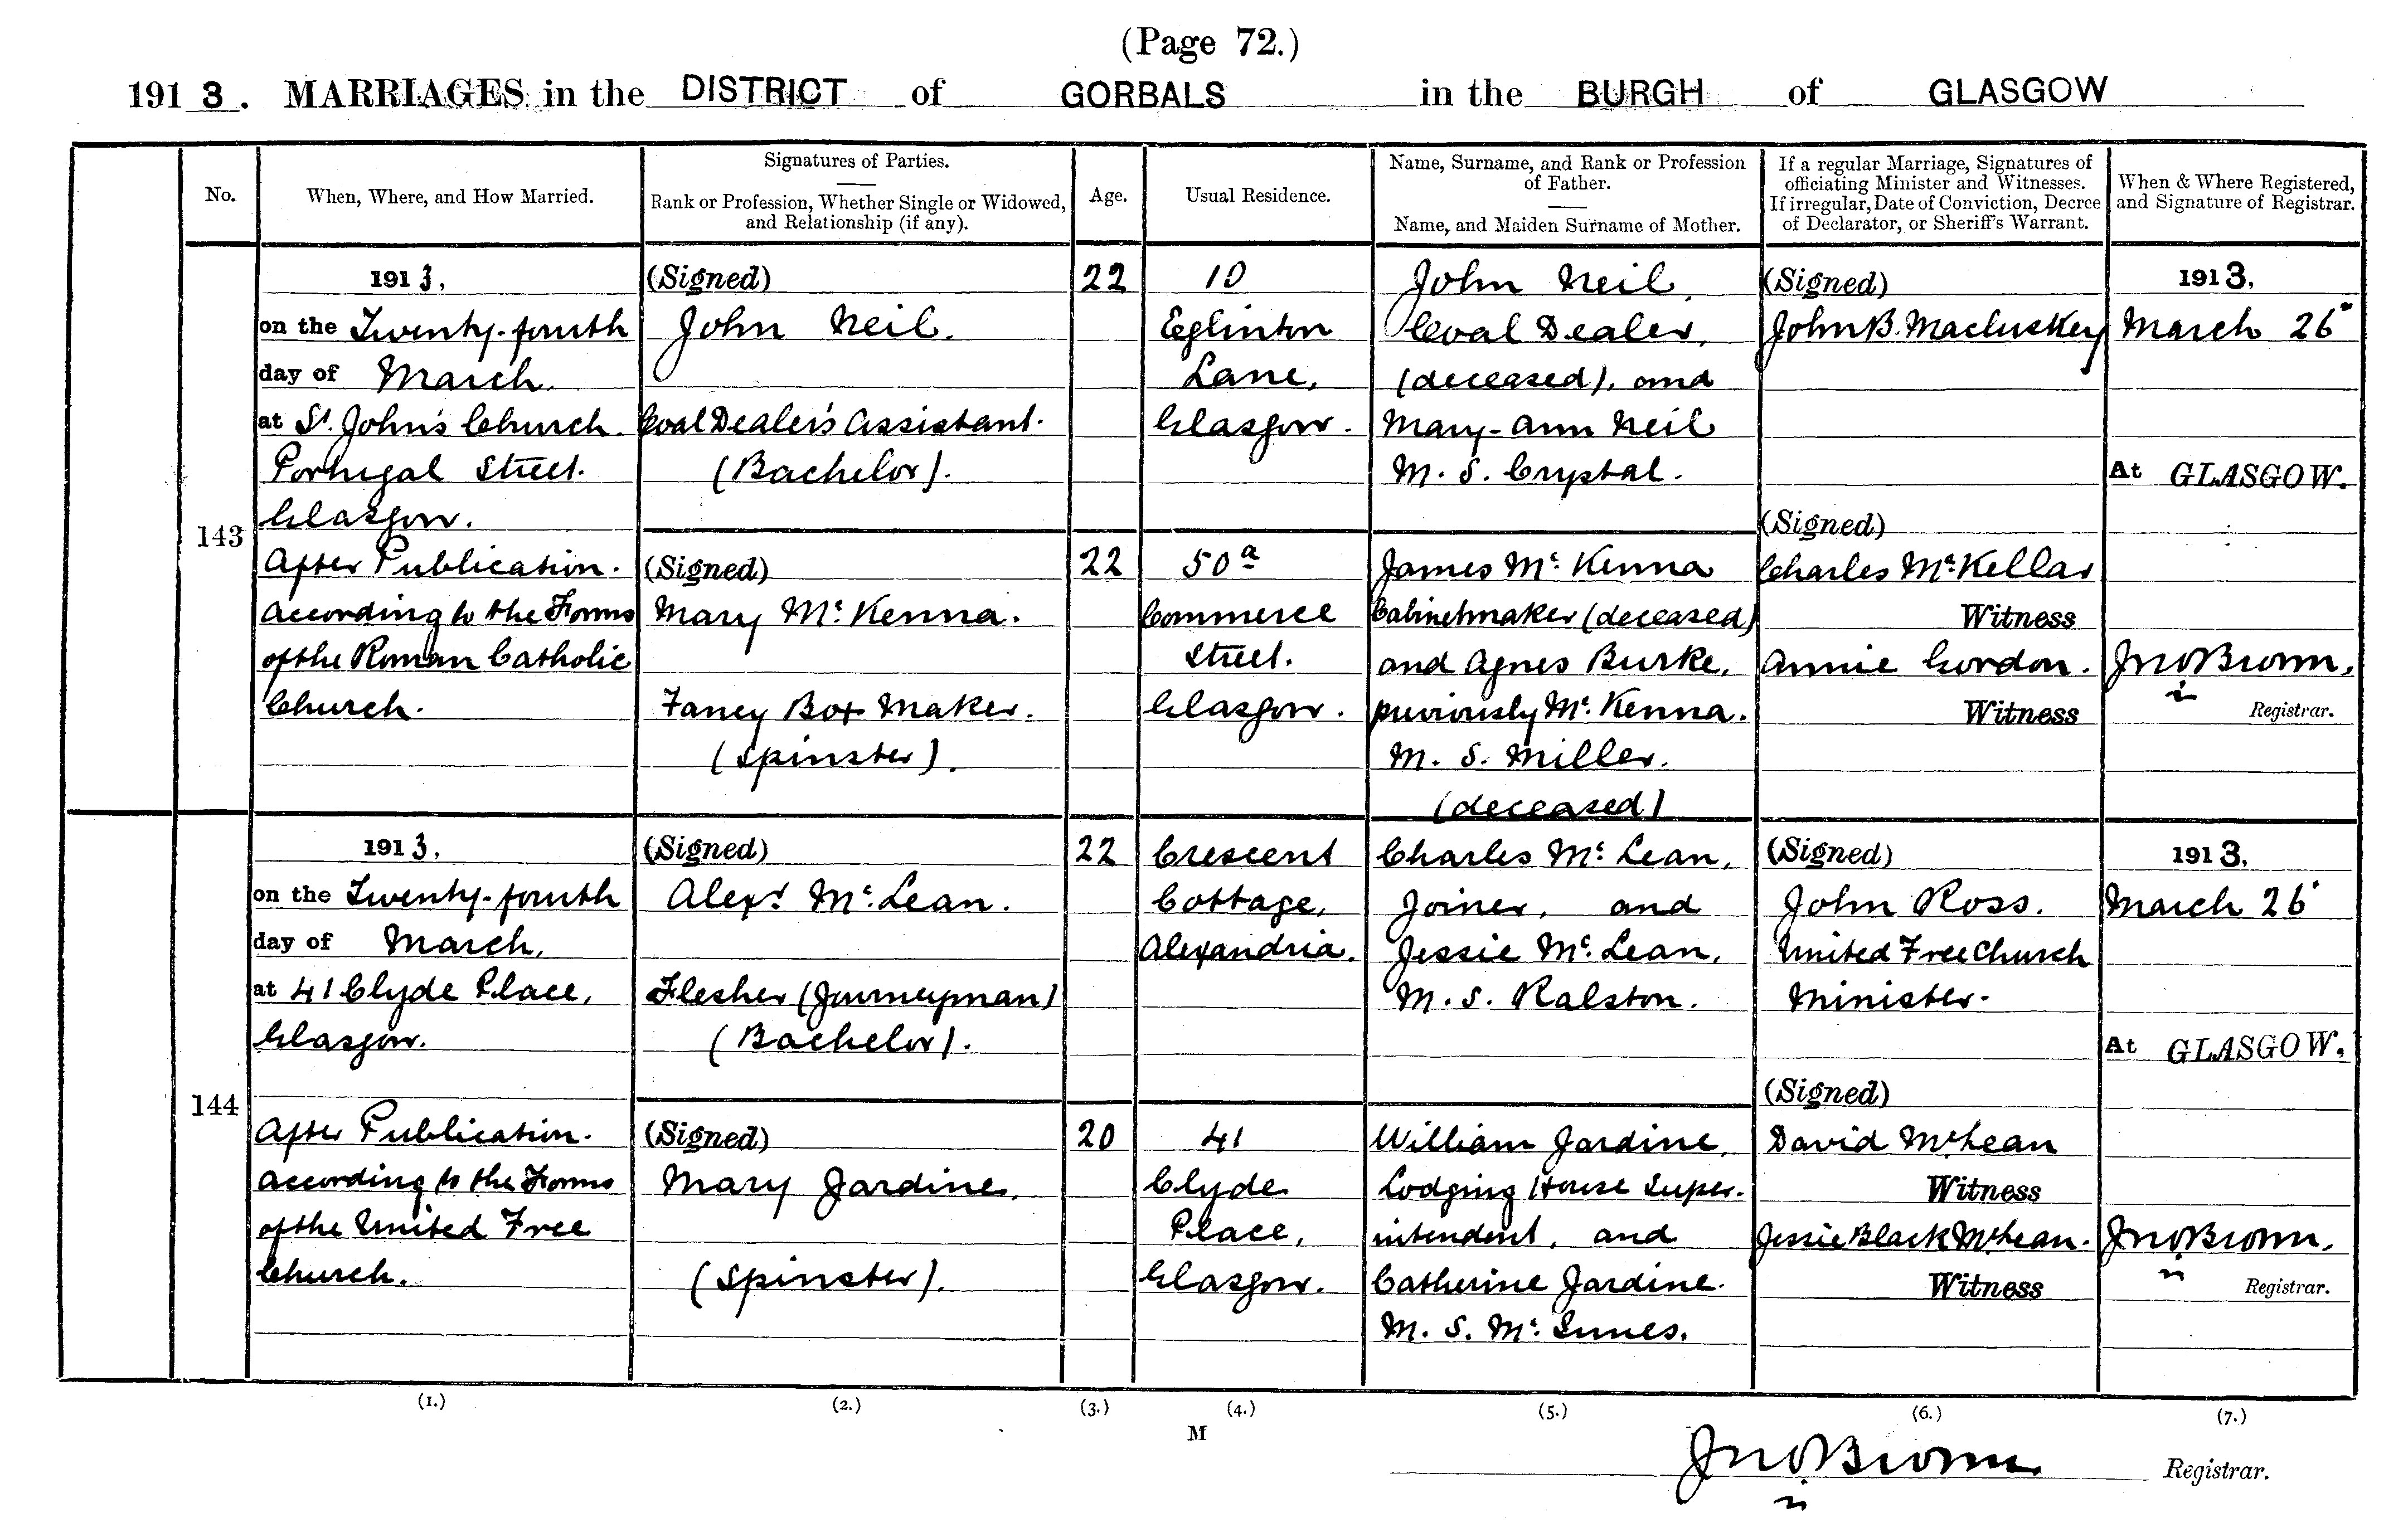 (Page 72.)
1913. MARRIAGES in the DISTRICT of GORBALS in the BURGH of GLASGOW
No.
When, Where, and How Married.
Signatures of Parties.
Rank or Profession, Whether Single or Widowed,
and Relationship (if any).
Age.
Usual Residence.
Name, Surname, and Rank or Profession
of Father.
Name, and Maiden Surname of Mother.
If a regular Marriage, Signatures of
officiating Minister and Witnesses.
If irregular, Date of Conviction, Decree
of Declarator, or Sheriff's Warrant.
When & Where Registered,
and Signature of Registrar.
143
1913,
on the Twenty-fourth
day of March.
at St. John's Church.
Portugal Street.
Glasgow.
After Publication.
According to the Forms
of the Roman Catholic
Church.
(Signed)
John Neil.
Coal Dealer's Assistant.
(Bachelor).
(Signed)
Mary Mc Kenna.
Fancy Box Maker.
(Spinster).
22
22
10
Eglinton
Lane,
Glasgow.
50a
Commerce
Street.
Glasgow.
John Neil,
Coal Dealer,
(deceased), and
Mary-Ann Neil
M. S. Crystal.
James Mc Kenna
Cabinetmaker (deceased)
and Agnes Burke,
previously Mc Kenna.
M. S. Miller.
(deceased)
(Signed)
John B. Macluskey
(Signed)
Charles McKellar
Witness
Annie Gordon.
Witness
1913,
March 26"
At GLASGOW.
Jno Brown,
Registrar.
144
1913,
on the Twenty-fourth
day of March,
at 41 Clyde Place,
Glasgow.
After Publication.
According to the Forms
of the United Free
Church.
(Signed)
Alexr Mc Lean.
Flesher (Journeyman)
(Bachelor).
(Signed)
Mary Jardine.
(Spinster).
22
20
Crescent
Cottage,
Alexandria.
41
Clyde
Place,
Glasgow.
Charles Mc Lean,
Joiner, and
Jessie Mc Lean,
M. S. Ralston.
William Jardine,
Lodging House Super-
intendent, and
Catherine Jardine.
M. S. Mc Innes.
(Signed)
John Ross.
United Free Church
Minister.
(Signed)
David McLean
Witness
Jessie Black McLean.
Witness
1913,
March 26"
At GLASGOW.
Jno Brown,
Registrar.
(1.) (2.) (3.) (4.) (5.) (6.) (7.)
M
Jno Brown Registrar.